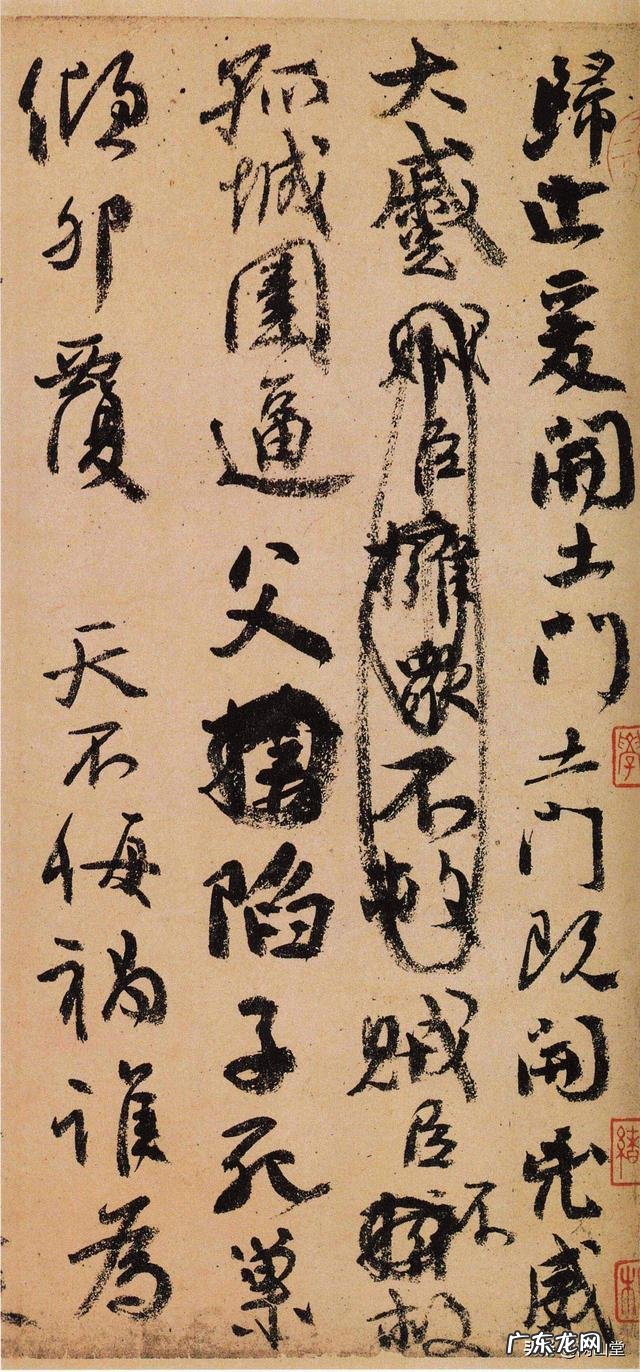 歸止爰開土門土門既開兇威
大蹙賊臣擁衆不救賊臣不救
孤城圍逼父陷子死巢
傾卵覆 天不悔禍誰為
广东龙网